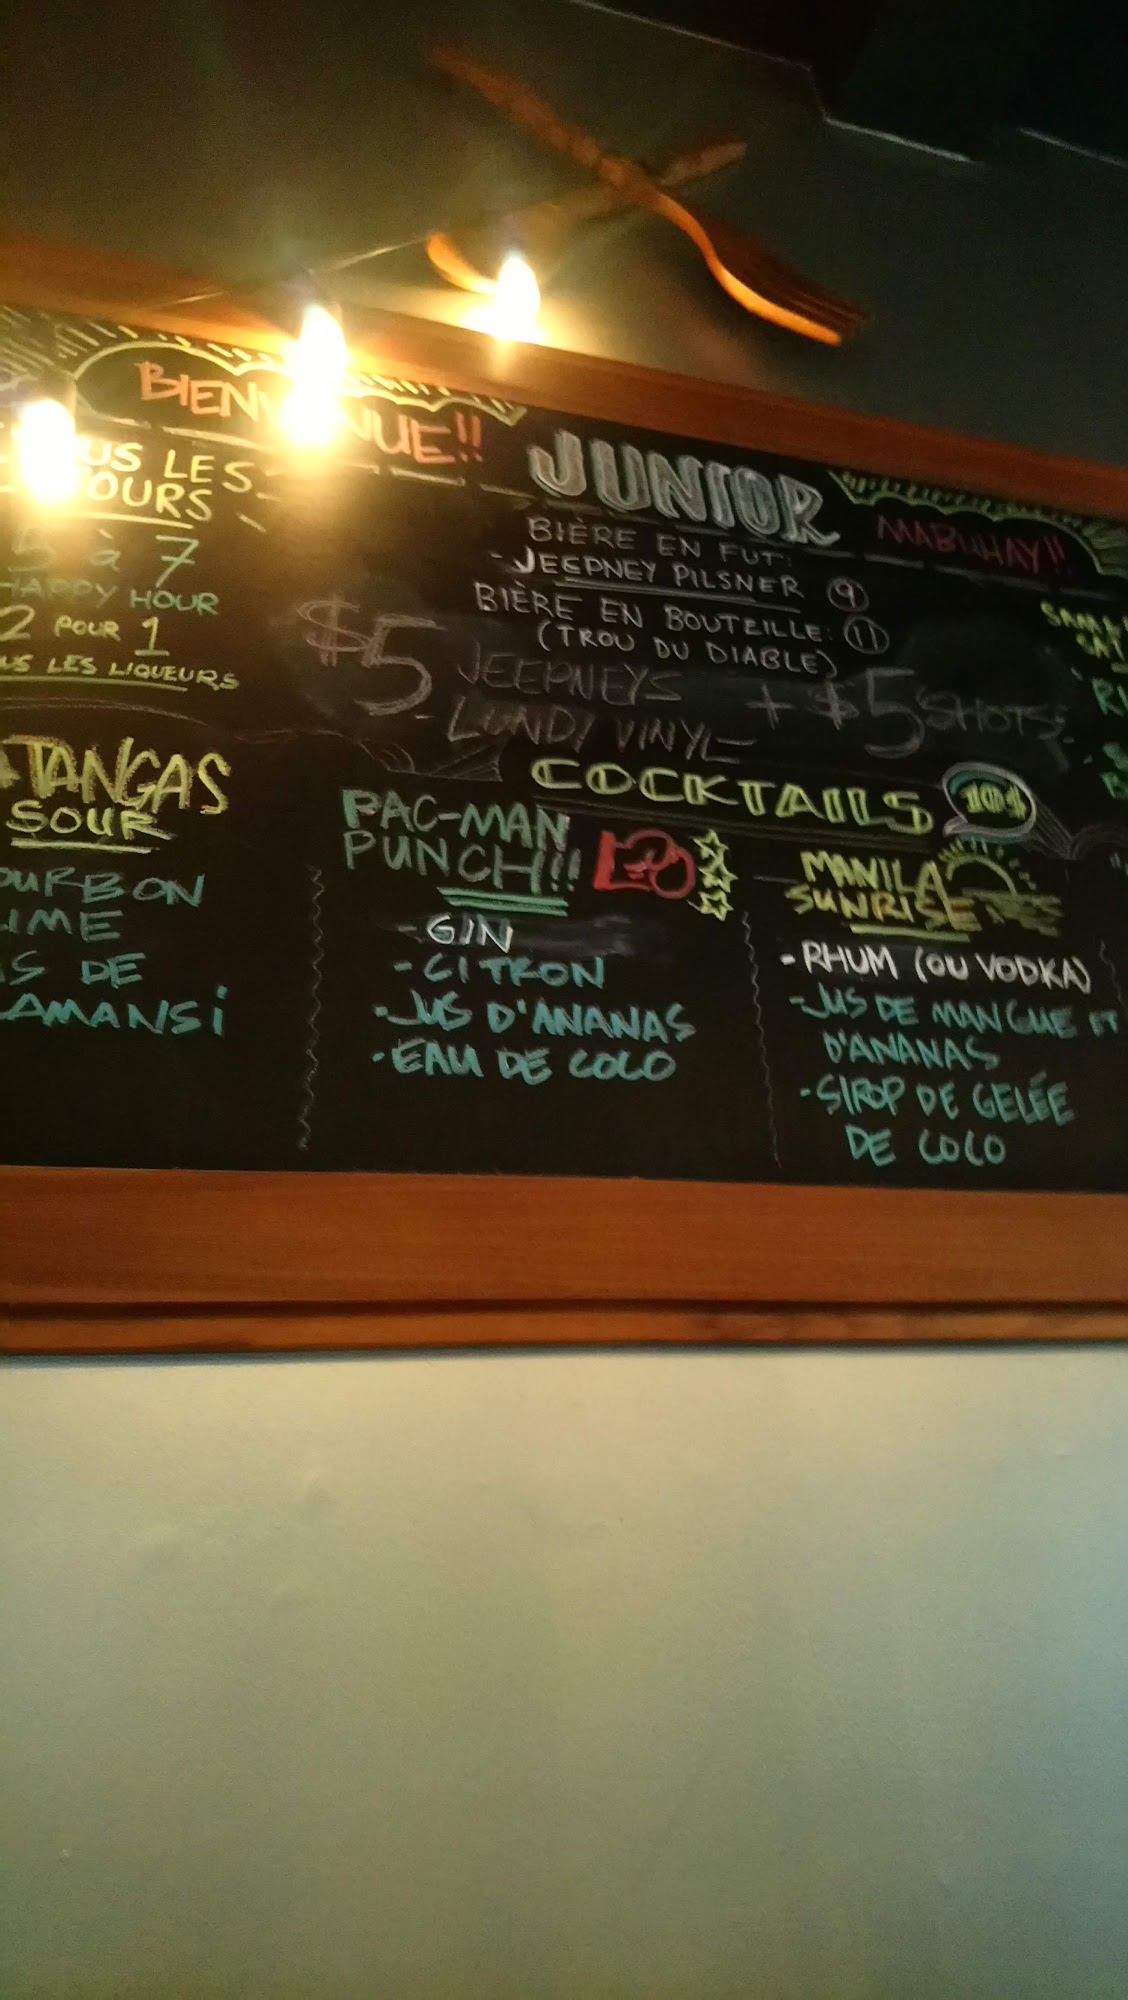 BIENVENUE!!
LES
5 à 7
HAPPY HOUR
2 POUR 1
LES LIQUEURS
JUNIOR
MABUHAY!!
BIÈRE EN FUT:
- JEEPNEY PILSNER 9
BIÈRE EN BOUTEILLE: 11
(TROU DU DIABLE)
$5 JEEPNEYS + $5 SHOTS
- LUNDI VINYL -
COCKTAILS 10$
SOUR
DE
PAC-MAN
PUNCH!!
- GIN
- CITRON
- JUS D'ANANAS
- EAU DE COCO
MANILA
SUNRISE
- RHUM (OU VODKA)
- JUS DE MANGUE ET
D'ANANAS
- SIROP DE GELÉE
DE COCO